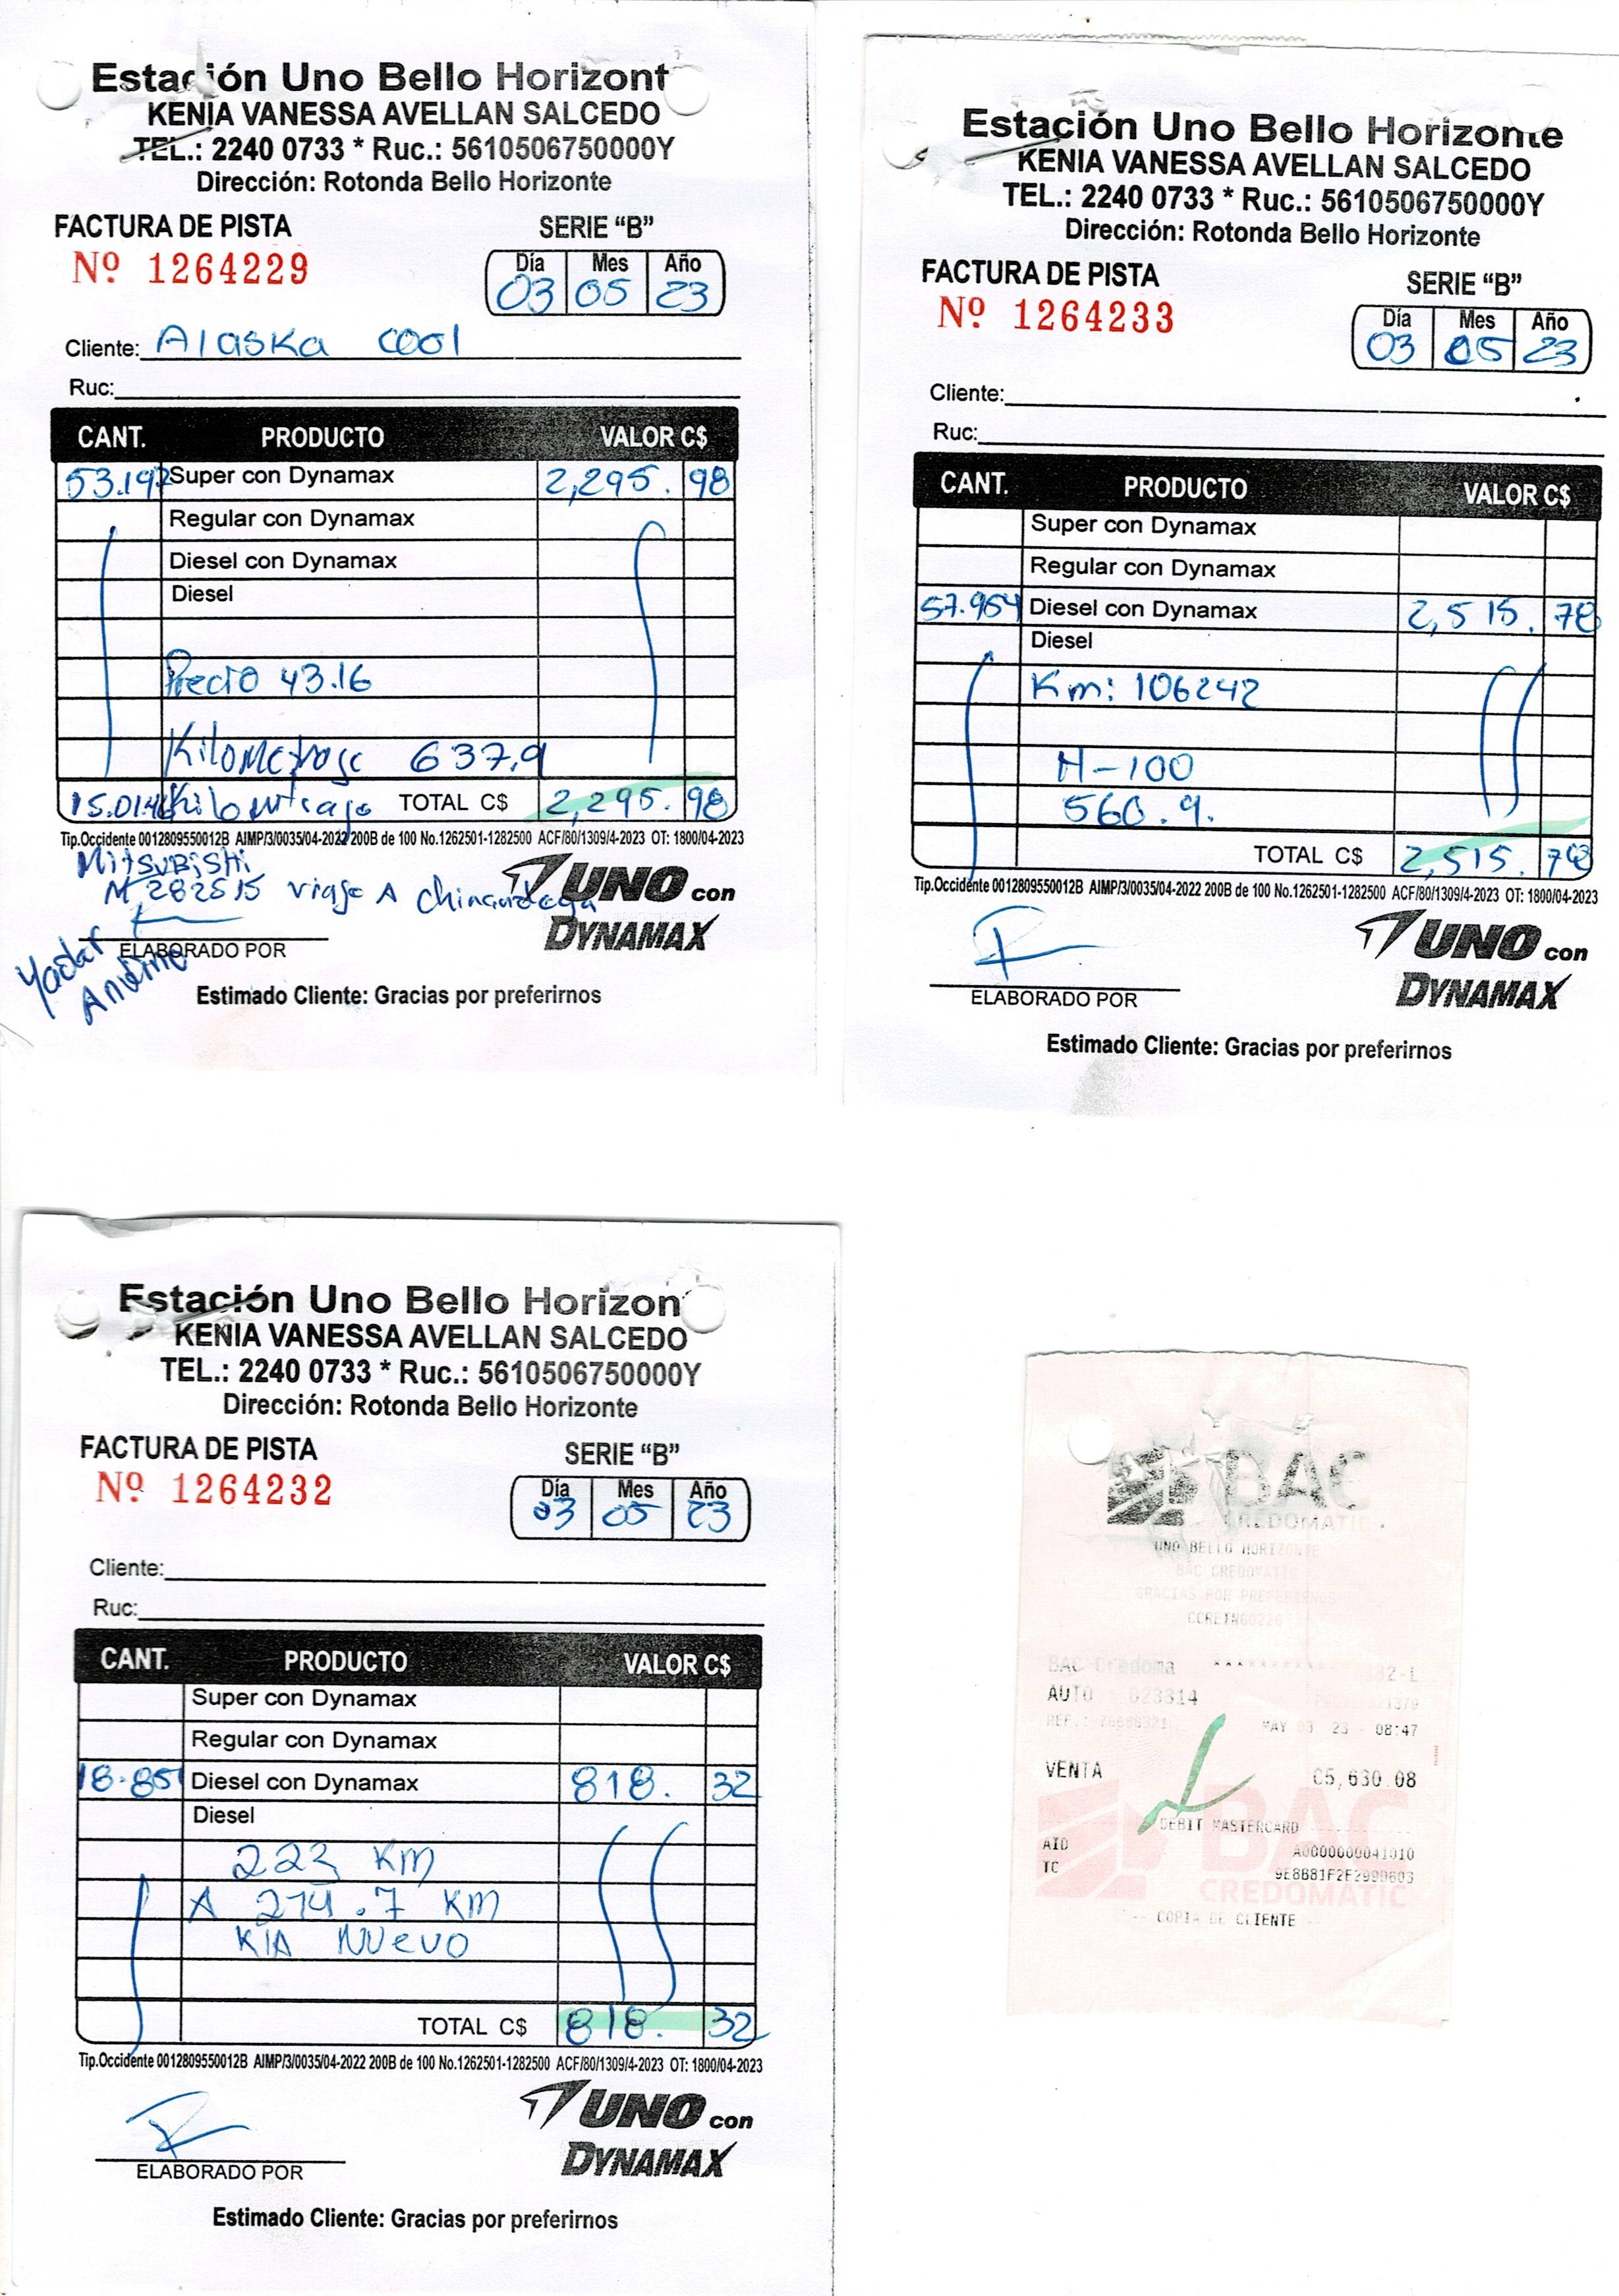 Estación Uno Bello Horizont
KENIA VANESSA AVELLAN SALCEDO
TEL.: 2240 0733 * Ruc.: 5610506750000Y
Dirección: Rotonda Bello Horizonte
FACTURA DE PISTA SERIE “B”
Nº 1264229
Día Mes Año
03 05 23
Cliente: Alaska cool
Ruc:
CANT. PRODUCTO VALOR C$
53.197 Super con Dynamax 2,295. 98
Regular con Dynamax
Diesel con Dynamax
Diesel
Precio 43.16
Kilometraje 637,9
TOTAL C$ 2,295. 98
Tip.Occidente 0012809550012B AIMP/3/0035/04-2022 200B de 100 No.1262501-1282500 ACF/80/1309/4-2023 OT: 1800/04-2023
Mitsubishi
M 282515 viaje A Chinandega
UNO con
DYNAMAX
ELABORADO POR
Estimado Cliente: Gracias por preferirnos
Estación Uno Bello Horizonte
KENIA VANESSA AVELLAN SALCEDO
TEL.: 2240 0733 * Ruc.: 5610506750000Y
Dirección: Rotonda Bello Horizonte
FACTURA DE PISTA SERIE “B”
Nº 1264233
Día Mes Año
03 05 23
Cliente:
Ruc:
CANT. PRODUCTO VALOR C$
Super con Dynamax
Regular con Dynamax
57.954 Diesel con Dynamax 2,515. 78
Diesel
Km: 106242
H-100
560.9.
TOTAL C$ 2,515. 78
Tip.Occidente 0012809550012B AIMP/3/0035/04-2022 200B de 100 No.1262501-1282500 ACF/80/1309/4-2023 OT: 1800/04-2023
UNO con
DYNAMAX
ELABORADO POR
Estimado Cliente: Gracias por preferirnos
Estación Uno Bello Horizon
KENIA VANESSA AVELLAN SALCEDO
TEL.: 2240 0733 * Ruc.: 5610506750000Y
Dirección: Rotonda Bello Horizonte
FACTURA DE PISTA SERIE “B”
Nº 1264232
Día Mes Año
03 05 23
Cliente:
Ruc:
CANT. PRODUCTO VALOR C$
Super con Dynamax
Regular con Dynamax
18.851 Diesel con Dynamax 818. 32
Diesel
223 KM
A 214.7 KM
KIA NUEVO
TOTAL C$ 818. 32
Tip.Occidente 0012809550012B AIMP/3/0035/04-2022 200B de 100 No.1262501-1282500 ACF/80/1309/4-2023 OT: 1800/04-2023
UNO con
DYNAMAX
ELABORADO POR
Estimado Cliente: Gracias por preferirnos
BAC
CREDOMATIC
UNO BELLO HORIZONTE
BAC CREDOMATIC
GRACIAS POR PREFERIRNOS
BAC Credoma 82-L
AUTO : 023314
REF.: MAY 03 23 - 08:47
VENTA C5,630.08
DEBIT MASTERCARD
AID A0000000041010
TC 9E8B81F2E2990603
-- COPIA DE CLIENTE --
BAC
CREDOMATIC